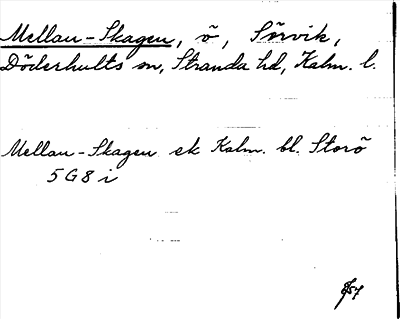 Mellan-Skagen, ö, Sörvik,
Döderhults sn, Stranda hd, Kalm. l.
Mellan-Skagen ek Kalm. bl. Storö
5 G 8 i